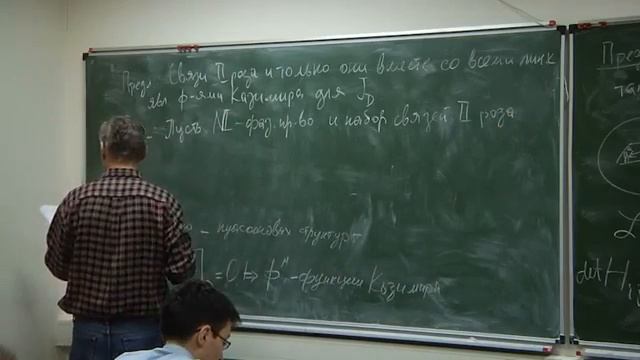 Предл Связи II рода и только они вместе со всеми лин к
явл ф-ями Казимира для J_D
- Пусть М - фаз. пр-во и набор связей II рода
- пуассоновых структур -
] = 0 ⇔ φᴺ - функции Казимира
Пред
так
L
det H